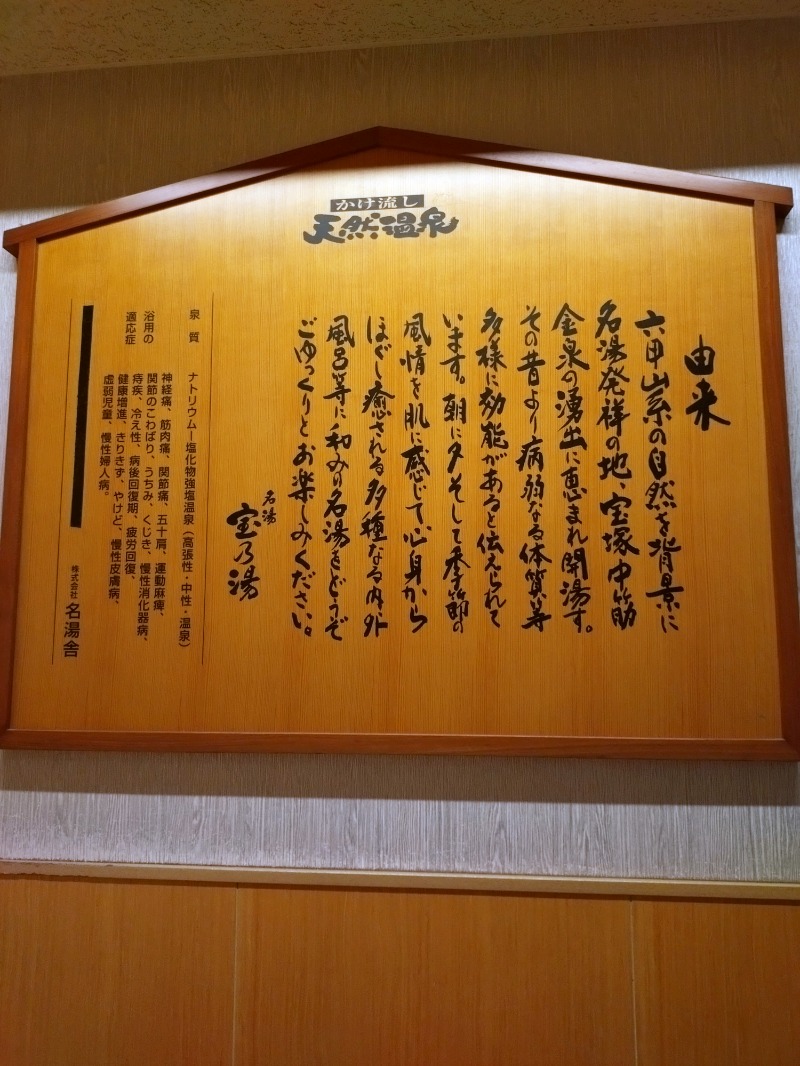 かけ流し
天然温泉
由来
六甲山系の自然を背景に
名湯発祥の地、宝塚中筋
金泉の湧出に恵まれ開湯す。
その昔より病弱なる体質等
多様に効能があると伝えられて
います。朝に夕そして季節の
風情を肌に感じて心身から
ほぐし癒される多種なる内外
風呂等に和みの名湯をどうぞ
ごゆっくりとお楽しみください。
名湯 宝乃湯
泉質 ナトリウムー塩化物強塩温泉（高張性・中性・温泉）
浴用の適応症 神経痛、筋肉痛、関節痛、五十肩、運動麻痺、
関節のこわばり、うちみ、くじき、慢性消化器病、
痔疾、冷え性、病後回復期、疲労回復、
健康増進、きりきず、やけど、慢性皮膚病、
虚弱児童、慢性婦人病。
株式会社 名湯舎